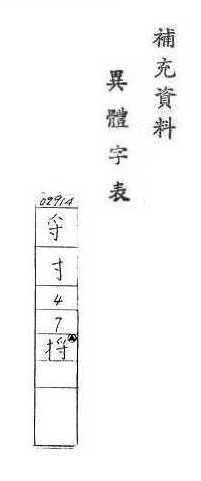 補充資料
異體字表
02914
寽
寸
4
7
捋